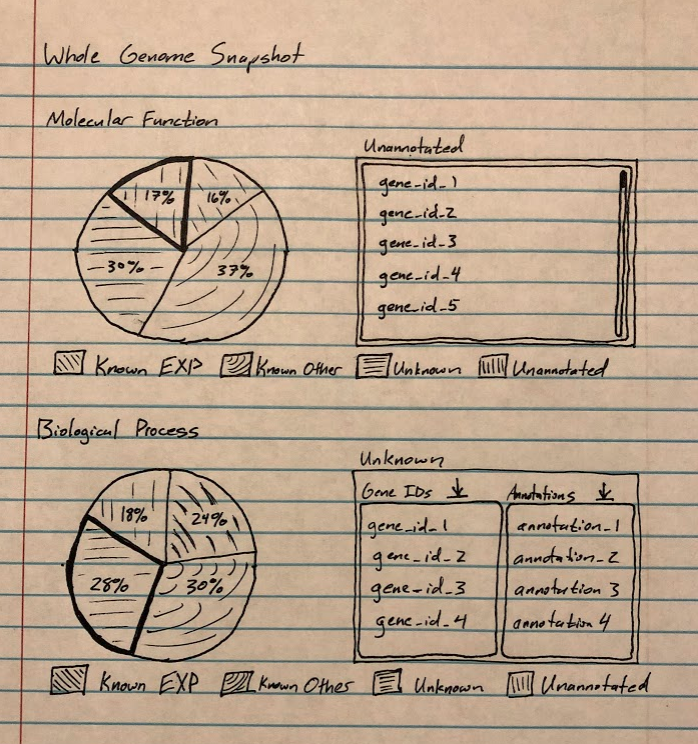 Whole Genome Snapshot
Molecular Function
Unannotated
17%
16%
30%
37%
gene_id_1
gene_id_2
gene_id_3
gene_id_4
gene_id_5
Known EXP Known Other Unknown Unannotated
Biological Process
Unknown
Gene IDs Annotations
18%
24%
28%
30%
gene_id_1 annotation_1
gene_id_2 annotation_2
gene_id_3 annotation 3
gene_id_4 annotation 4
Known EXP Known Other Unknown Unannotated